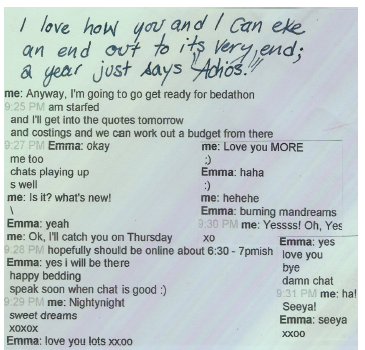 I love how you and I can eke
an end out to its very end;
a year just says "Adios."
me: Anyway, I'm going to go get ready for bedathon
9:25 PM am starfed
and I'll get into the quotes tomorrow
and costings and we can work out a budget from there
9:27 PM Emma: okay
me too
chats playing up
s well
me: Is it? what's new!
\
Emma: yeah
me: Ok, I'll catch you on Thursday
9:28 PM hopefully should be online about 6:30 - 7pmish
Emma: yes i will be there
happy bedding
speak soon when chat is good :)
9:29 PM me: Nightynight
sweet dreams
xoxox
Emma: love you lots xxoo
me: Love you MORE
:)
Emma: haha
:)
me: hehehe
Emma: burning mandreams
9:30 PM me: Yesssss! Oh, Yes
xo
Emma: yes
love you
bye
damn chat
9:31 PM me: ha!
Seeya!
Emma: seeya
xxoo